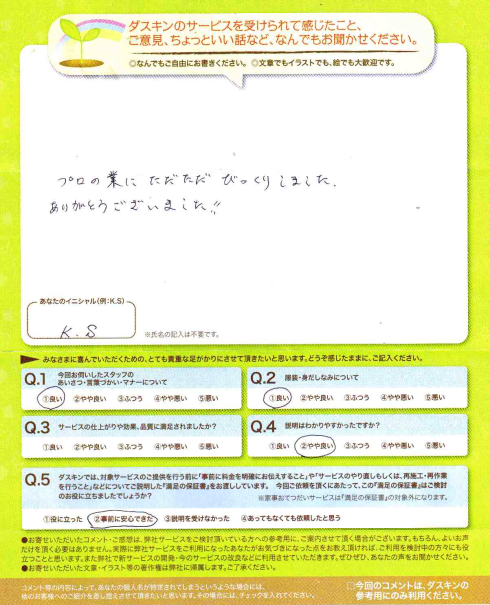 ダスキンのサービスを受けられて感じたこと、
ご意見、ちょっといい話など、なんでもお聞かせください。
◎なんでもご自由にお書きください。◎文章でもイラストでも、絵でも大歓迎です。
プロの業に ただただ びっくりしました.
ありがとうございました!!
あなたのイニシャル(例:K.S)
K.S
※氏名の記入は不要です。
みなさまに喜んでいただくための、とても貴重な足がかりにさせて頂きたいと思います。どうぞ感じたままに、ご記入ください。
Q.1 今回お伺いしたスタッフの
あいさつ・言葉づかい・マナーについて
①良い ②やや良い ③ふつう ④やや悪い ⑤悪い
Q.2 服装・身だしなみについて
①良い ②やや良い ③ふつう ④やや悪い ⑤悪い
Q.3 サービスの仕上がりや効果、品質に満足されましたか?
①良い ②やや良い ③ふつう ④やや悪い ⑤悪い
Q.4 説明はわかりやすかったですか?
①良い ②やや良い ③ふつう ④やや悪い ⑤悪い
Q.5 ダスキンでは、対象サービスのご提供を行う前に「事前に料金を明確にお伝えすること」や「サービスのやり直しもしくは、再施工・再作業
を行うこと」などについてご説明した『満足の保証書』をお渡ししています。 今回ご依頼を頂くにあたって、この『満足の保証書』はご検討
のお役に立ちましたでしょうか?
※家事おてつだいサービスは『満足の保証書』の対象外になります。
①役に立った ②事前に安心できた ③説明を受けなかった ④あってもなくても依頼したと思う
●お寄せいただいたコメント・ご感想は、弊社サービスをご検討頂いている方への参考用に、ご案内させて頂く場合がございます。もちろん、よいお声
だけを頂く必要はありません。実際に弊社サービスをご利用になったあなたがお気づきになった点をお教え頂ければ、ご利用を検討中の方々にも役
立つことと思います。また弊社で新サービスの開発・今のサービスの改良などに利用させていただきます。ぜひぜひ、あなたの声をお聞かせください。
●お寄せいただいた文章・イラスト等の著作権は弊社に帰属します。ご了承ください。
コメント等の内容によって、あなたの個人名が特定されてしまうというような場合には、
他のお客様へのご紹介を差し控えさせて頂きたいと思います。その場合には、チェックを入れてください。
□今回のコメントは、ダスキンの
参考用にのみ利用ください。